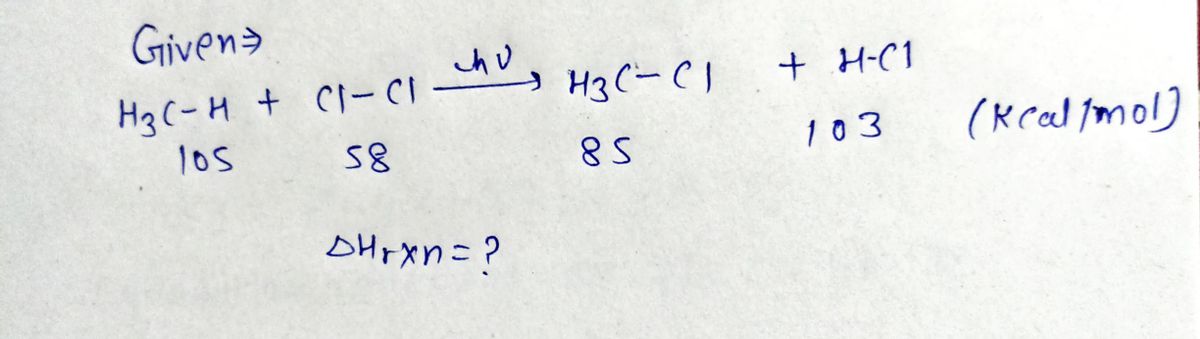 Given⇒
H3C-H + Cl-Cl hν→ H3C-Cl + H-Cl
105 58 85 103 (Kcal/mol)
ΔHrxn=?